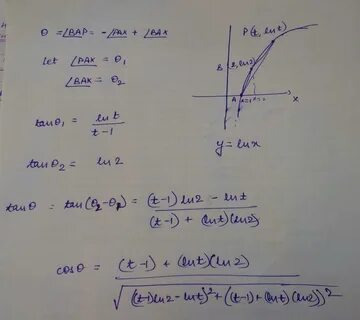 θ = ∠BAP = -∠PAX + ∠BAX
Let ∠PAX = θ₁
∠BAX = θ₂
tanθ₁ = ln t / (t-1)
tanθ₂ = ln 2
tanθ = tan(θ₂-θ₁) = ((t-1) ln2 - ln t) / ((t-1) + (ln t)(ln2))
cosθ = ((t-1) + (ln t)(ln2)) / √(((t-1)ln2 - ln t)² + ((t-1) + (ln t)(ln2))²)
P(t, ln t)
B
(2, ln2)
A
x=1
x=2
X
y = ln x